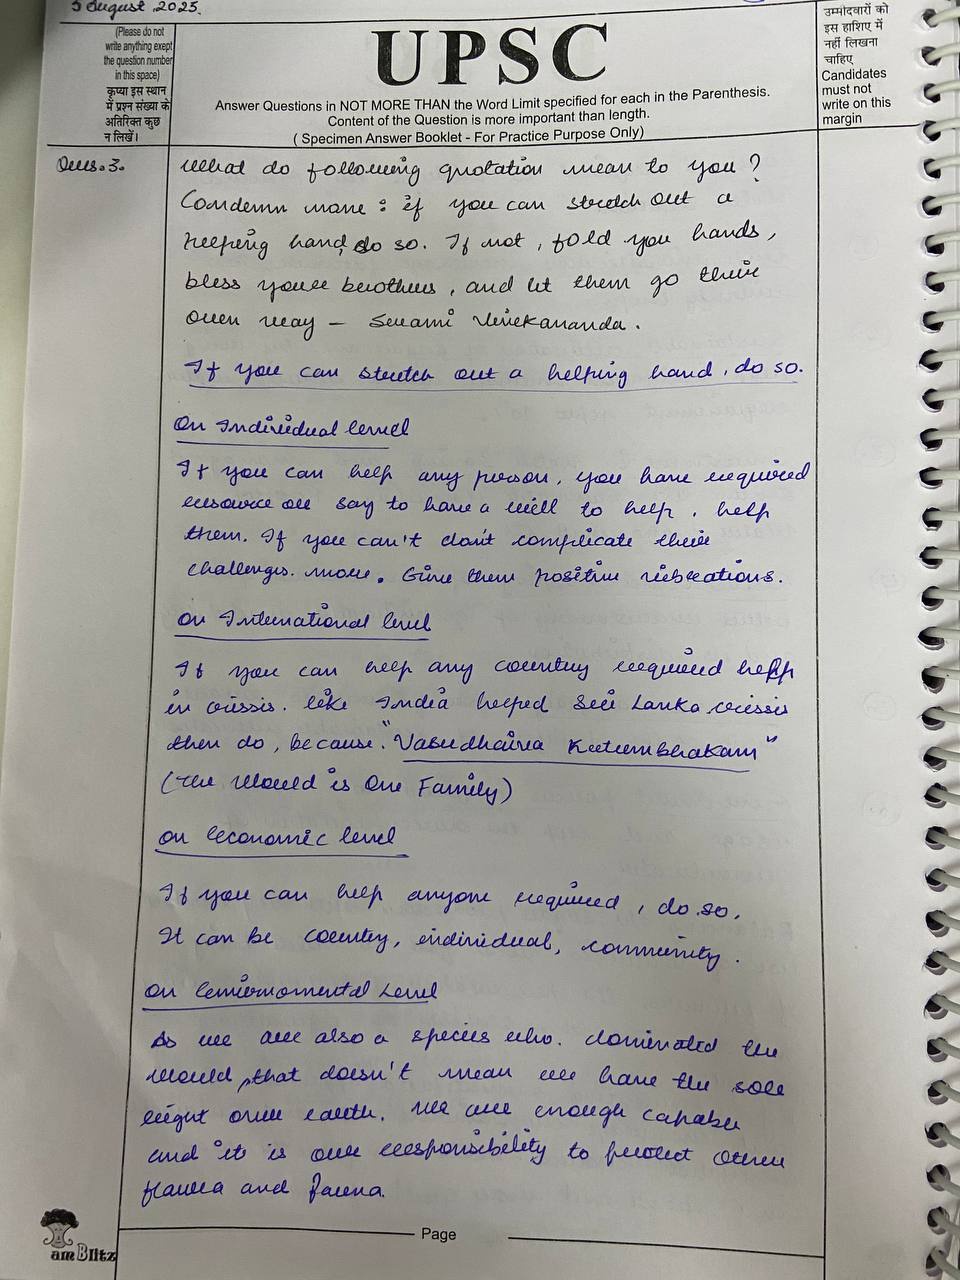 5 August 2025.
(Please do not
write anything exept
the question number
in this space)
कृप्या इस स्थान
में प्रश्न संख्या के
अतिरिक्त कुछ
न लिखें।
UPSC
Answer Questions in NOT MORE THAN the Word Limit specified for each in the Parenthesis.
Content of the Question is more important than length.
( Specimen Answer Booklet - For Practice Purpose Only)
उम्मीदवारों को
इस हाशिए में
नहीं लिखना
चाहिए
Candidates
must not
write on this
margin
Ques.3.
What do following quotation mean to you?
Condemn none : if you can stretch out a
helping hand, do so. If not, fold you hands,
bless your brothers, and let them go their
own way – Swami Vivekananda.
If you can stretch out a helping hand, do so.
On Individual level
If you can help any person, you have required
resource or say to have a will to help, help
them. If you can't don't complicate their
challenges more. Give them positive vibrations.
On International level
If you can help any country required help
in crisis. like India helped Sri Lanka crisis
then do, because. "Vasudhaiva Kutumbhakam"
(The World is One Family)
On economic level
If you can help anyone required, do so.
It can be country, individual, community.
On Enviornomental Level
As we are also a species who. dominated the
world, that doesn't mean we have the sole
right over earth. We are enough capable
and it is our responsibility to protect other
flaura and fauna.
Page
am Blitz